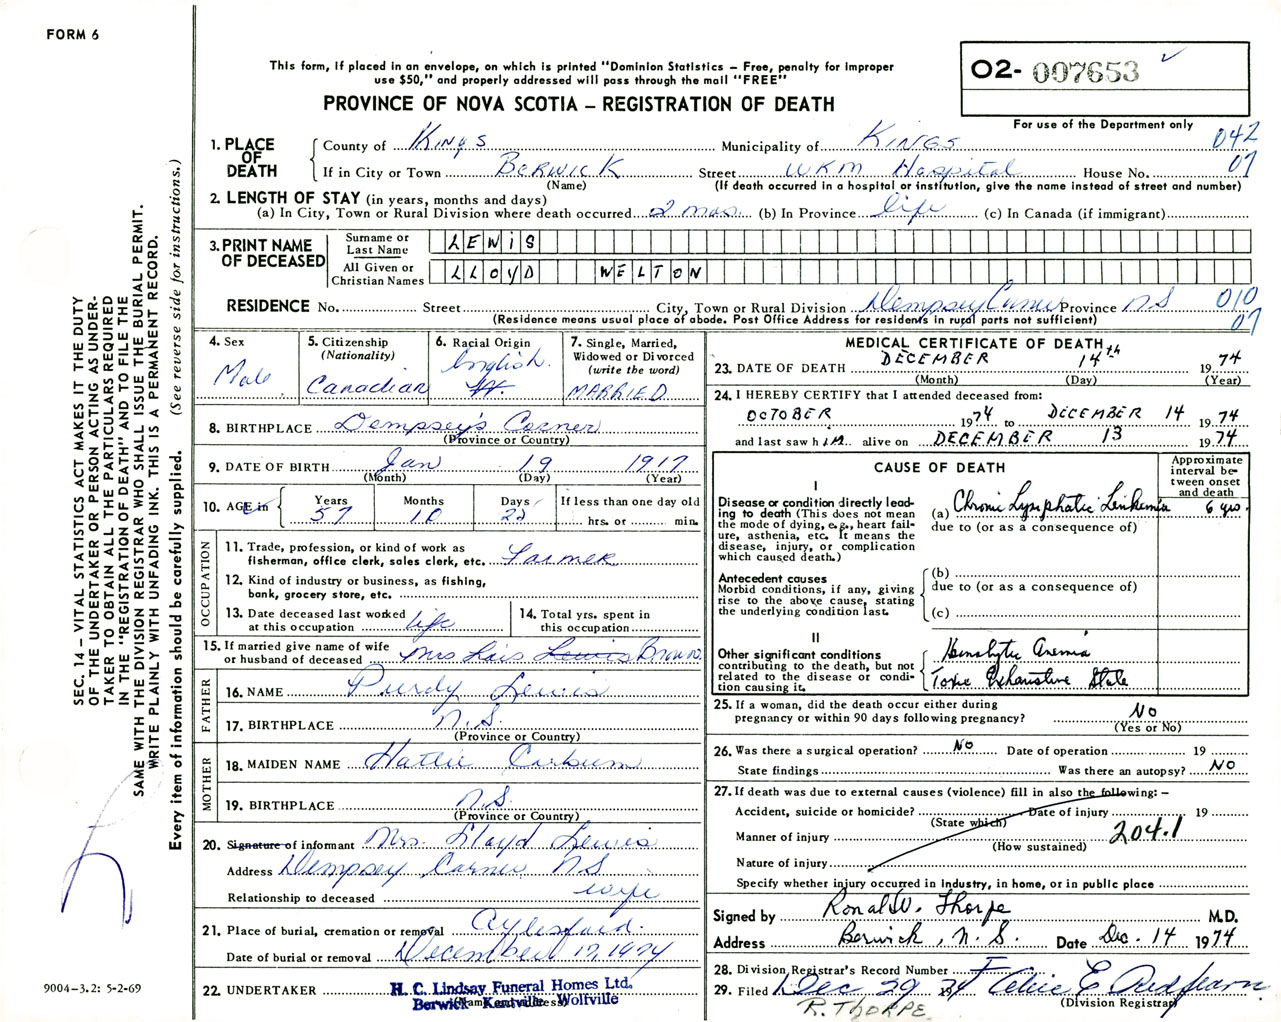 FORM 6
This form, if placed in an envelope, on which is printed "Dominion Statistics – Free, penalty for improper
use $50," and properly addressed will pass through the mail "FREE"
PROVINCE OF NOVA SCOTIA – REGISTRATION OF DEATH
02- 007653
For use of the Department only
042
07
1. PLACE OF DEATH
County of Kings Municipality of Kings
If in City or Town Berwick Street WKM Hospital House No.
(Name) (If death occurred in a hospital or institution, give the name instead of street and number)
2. LENGTH OF STAY (in years, months and days)
(a) In City, Town or Rural Division where death occurred 2 mos. (b) In Province life (c) In Canada (if immigrant)
3. PRINT NAME OF DECEASED
Surname or Last Name LEWIS
All Given or Christian Names LLOYD WELTON
RESIDENCE No. Street City, Town or Rural Division Dempsey Corner Province NS 010
(Residence means usual place of abode. Post Office Address for residents in rural parts not sufficient) 07
4. Sex Male
5. Citizenship (Nationality) Canadian
6. Racial Origin English
7. Single, Married, Widowed or Divorced (write the word) MARRIED
8. BIRTHPLACE Dempsey's Corner
(Province or Country)
9. DATE OF BIRTH Jan 19 1917
(Month) (Day) (Year)
10. AGE in Years 57 Months 10 Days 22 If less than one day old
hrs. or min.
OCCUPATION
11. Trade, profession, or kind of work as
fisherman, office clerk, sales clerk, etc. Farmer
12. Kind of industry or business, as fishing,
bank, grocery store, etc.
13. Date deceased last worked at this occupation life
14. Total yrs. spent in this occupation
15. If married give name of wife
or husband of deceased Mrs Lois Lewis Brown
FATHER
16. NAME Purdy Lewis
17. BIRTHPLACE N.S.
(Province or Country)
MOTHER
18. MAIDEN NAME Hattie
19. BIRTHPLACE N.S.
(Province or Country)
20. Signature of informant Mrs. Lloyd Lewis
Address Dempsey Corner NS
Relationship to deceased wife
21. Place of burial, cremation or removal Aylesford.
Date of burial or removal December 17, 1974
22. UNDERTAKER H. C. Lindsay Funeral Homes Ltd.
Berwick Kentville Wolfville
(Name and address)
MEDICAL CERTIFICATE OF DEATH
23. DATE OF DEATH DECEMBER 14th 1974
(Month) (Day) (Year)
24. I HEREBY CERTIFY that I attended deceased from:
OCTOBER 1974 to DECEMBER 14 1974
and last saw him alive on DECEMBER 13 1974
CAUSE OF DEATH
Approximate interval between onset and death
I
Disease or condition directly lead-
ing to death (This does not mean
the mode of dying, e.g., heart fail-
ure, asthenia, etc. It means the
disease, injury, or complication
which caused death.)
(a) Chronic Lymphatic Leukemia 6 yrs.
due to (or as a consequence of)
Antecedent causes
Morbid conditions, if any, giving
rise to the above cause, stating
the underlying condition last.
(b)
due to (or as a consequence of)
(c)
II
Other significant conditions
contributing to the death, but not
related to the disease or condi-
tion causing it.
Hemolytic Anemia
Toxic Exhaustive State
25. If a woman, did the death occur either during
pregnancy or within 90 days following pregnancy? No
(Yes or No)
26. Was there a surgical operation? No Date of operation 19
State findings Was there an autopsy? No
27. If death was due to external causes (violence) fill in also the following: –
Accident, suicide or homicide? Date of injury 19
(State which)
Manner of injury 204.1
(How sustained)
Nature of injury
Specify whether injury occurred in industry, in home, or in public place
Signed by Ronald W. Thorpe M.D.
Address Berwick, N.S. Date Dec. 14 1974
28. Division Registrar's Record Number
29. Filed Dec 29 1974 E Redfearn
(Division Registrar)
R. THORPE
SEC. 14 – VITAL STATISTICS ACT MAKES IT THE DUTY
OF THE UNDERTAKER OR PERSON ACTING AS UNDER-
TAKER TO OBTAIN ALL THE PARTICULARS REQUIRED
IN THE "REGISTRATION OF DEATH" AND TO FILE THE
SAME WITH THE DIVISION REGISTRAR WHO SHALL ISSUE THE BURIAL PERMIT.
WRITE PLAINLY WITH UNFADING INK. THIS IS A PERMANENT RECORD.
Every item of information should be carefully supplied. (See reverse side for instructions.)
9004-3.2: 5-2-69